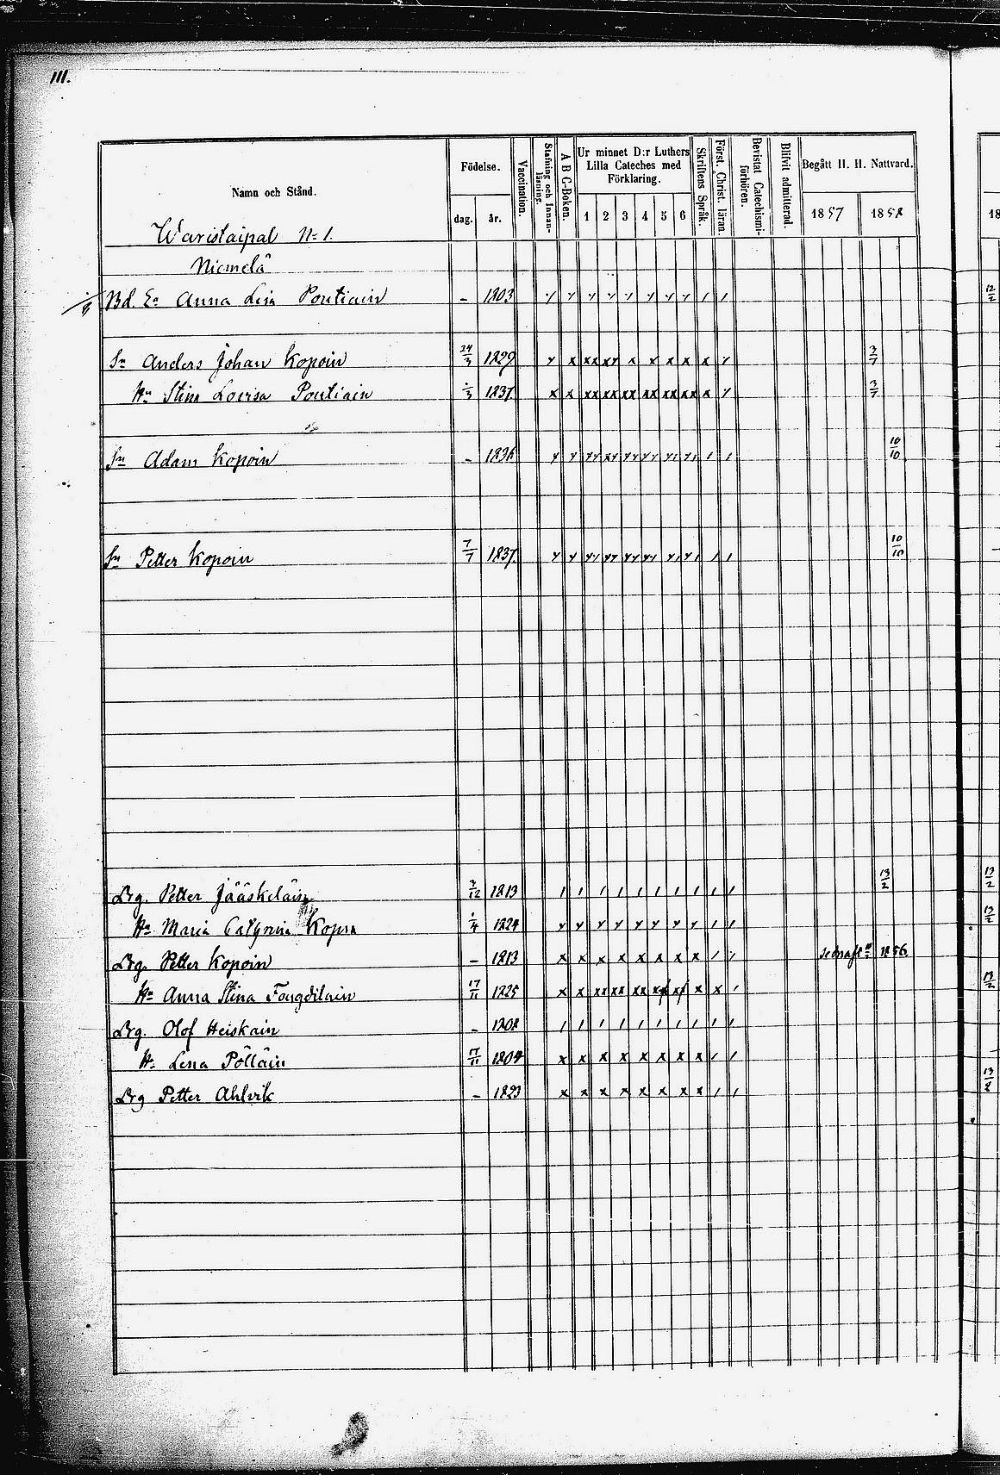 111.
Namn och Stånd. Födelse. dag. år. Vaccination. Stafning och Innanläsning. A B C-Boken. Ur minnet D:r Luthers Lilla Cateches med Förklaring. 1 2 3 4 5 6 Skriftens Språk. Först. Christ. läran. Bevistat Catechismiförhören. Blifvit admitterad. Begått H. H. Nattvard. 1857 1858
Waristaipal N:1.
Niemelä
Bd. Ea Anna Lisa Poutiain - 1803 / /
Sn Anders Johan Kopoin 24/3 1829 x x xx x x x x x 3/7
Hu Stina Lovisa Poutiain 1837 x x xx xx xx xx xx xx x 3/7
Sn Adam Kopoin - 1836 / / 10/10
Sn Petter Kopoin 7/7 1837 / / 10/10
Drg. Petter Jääskeläin 3/12 1813 / / / / / / / / / / 13/2 13/2
Hu Maria Cathrina Kopsa 1/4 1824 / / 13/2
Drg. Petter Kopoin - 1813 x x x x x x x x / 1856
Hu Anna Stina Fougdilain 17/11 1225 x x xx xx xx x x x / 13/2
Drg. Olof Heiskain - 1208 / / / / / / / / / /
H: Lena Pölläin 17/11 1804 x x x x x x x x / /
Drg Petter Ahlvik - 1823 x x x x x x x x / /